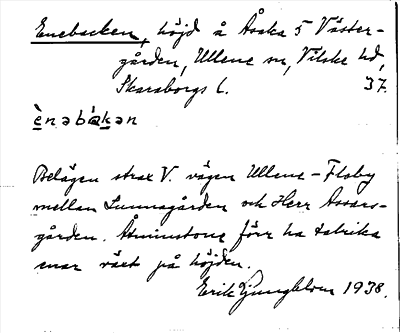 Enebacken, höjd å Åsaka 5 Väster-
gården, Ullene sn, Vilske hd,
Skaraborgs l. 37.
ènabàkan
Belägen strax V. vägen Ullene - Floby
mellan Lunnagården och Herr Assars-
gården. Åtminstone förr ha talrika
enar växt på höjden.
Erik Ljungblom 1938.